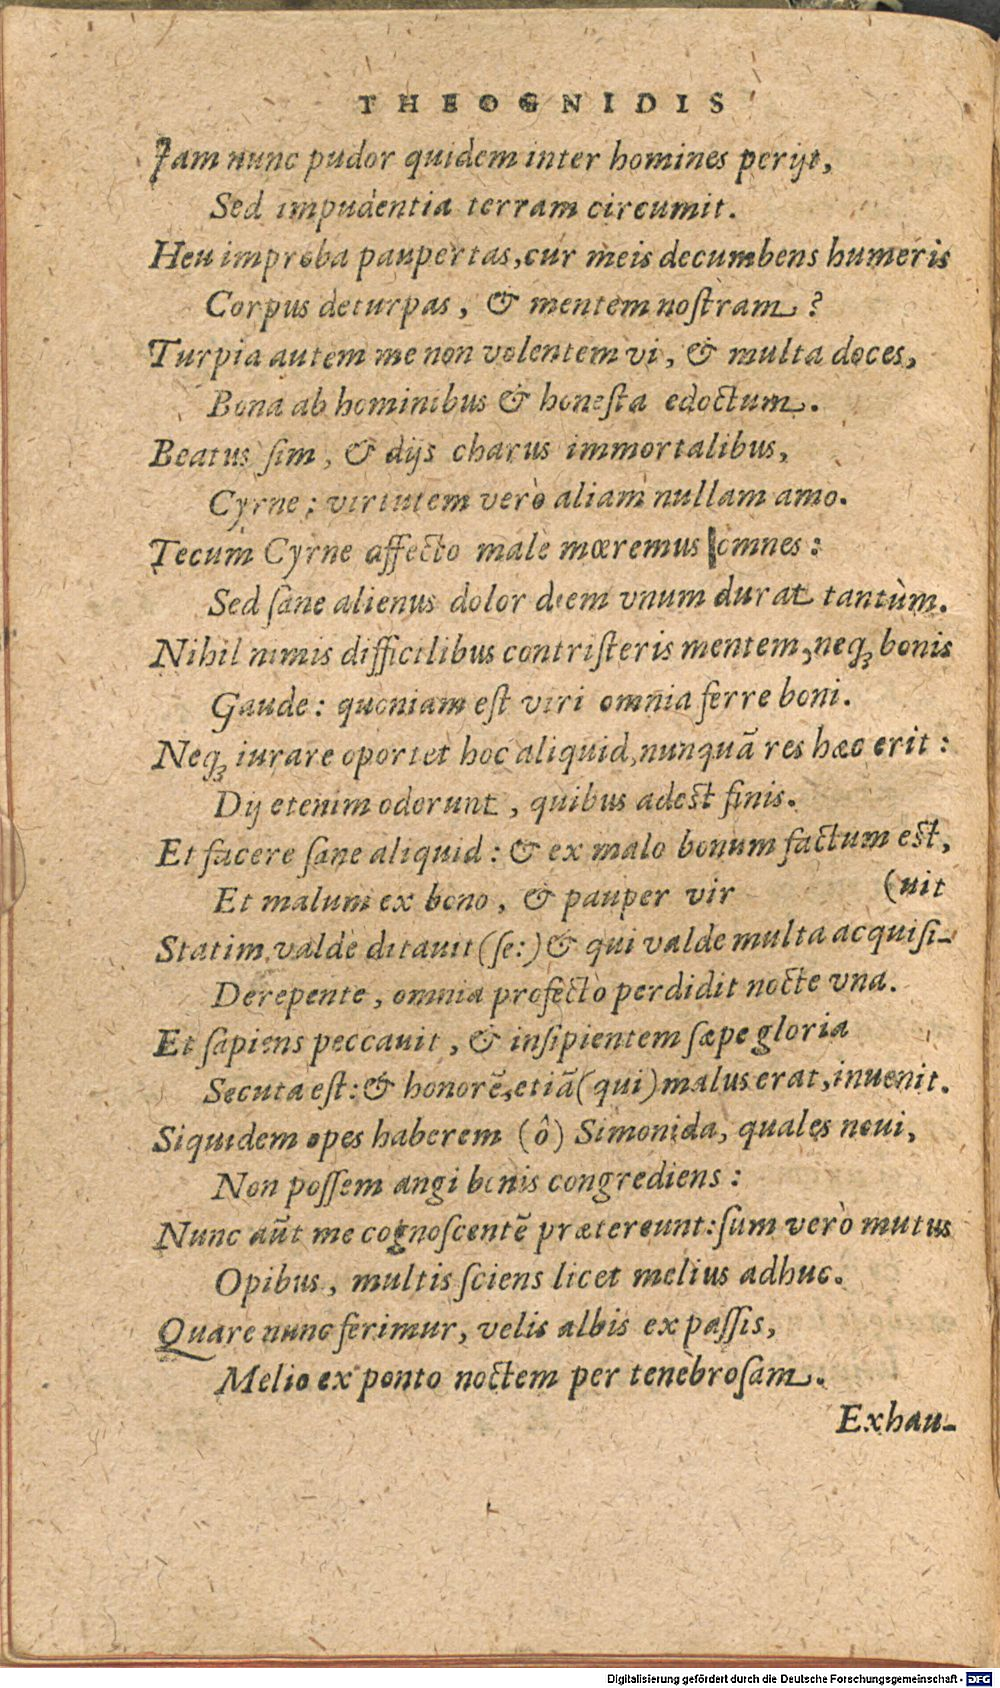 THEOGNIDIS
Jam nunc pudor quidem inter homines perijt,
Sed impudentia terram circumit.
Heu improba paupertas, cur meis decumbens humeris
Corpus deturpas, & mentem noſtram?
Turpia autem me non volentem vi, & multa doces,
Bona ab hominibus & honeſta edoctum.
Beatus ſim, & dijs charus immortalibus,
Cyrne: virtutem verò aliam nullam amo.
Tecum Cyrne affecto male mœremus omnes:
Sed ſane alienus dolor diem vnum durat tantùm.
Nihil nimis difficilibus contriſteris mentem, neq; bonis
Gaude: quoniam eſt viri omnia ferre boni.
Neq; iurare oportet hoc aliquid, nunquā res hæc erit:
Dij etenim oderunt, quibus adeſt finis.
Et facere ſane aliquid: & ex malo bonum factum eſt,
Et malum ex bono, & pauper vir (uit
Statim valde ditauit (ſe:) & qui valde multa acquiſi-
Derepente, omnia profectò perdidit nocte vna.
Et ſapiens peccauit, & inſipientem ſæpe gloria
Secuta eſt: & honorē, etiā (qui) malus erat, inuenit.
Siquidem opes haberem (ô) Simonida, quales noui,
Non poſſem angi bonis congrediens:
Nunc aūt me cognoſcentē prætereunt: ſum verò mutus
Opibus, multis ſciens licet melius adhuc.
Quare nunc ferimur, velis albis expaſſis,
Melio ex ponto noctem per tenebroſam.
Exhau-
Digitalisierung gefördert durch die Deutsche Forschungsgemeinschaft - DFG